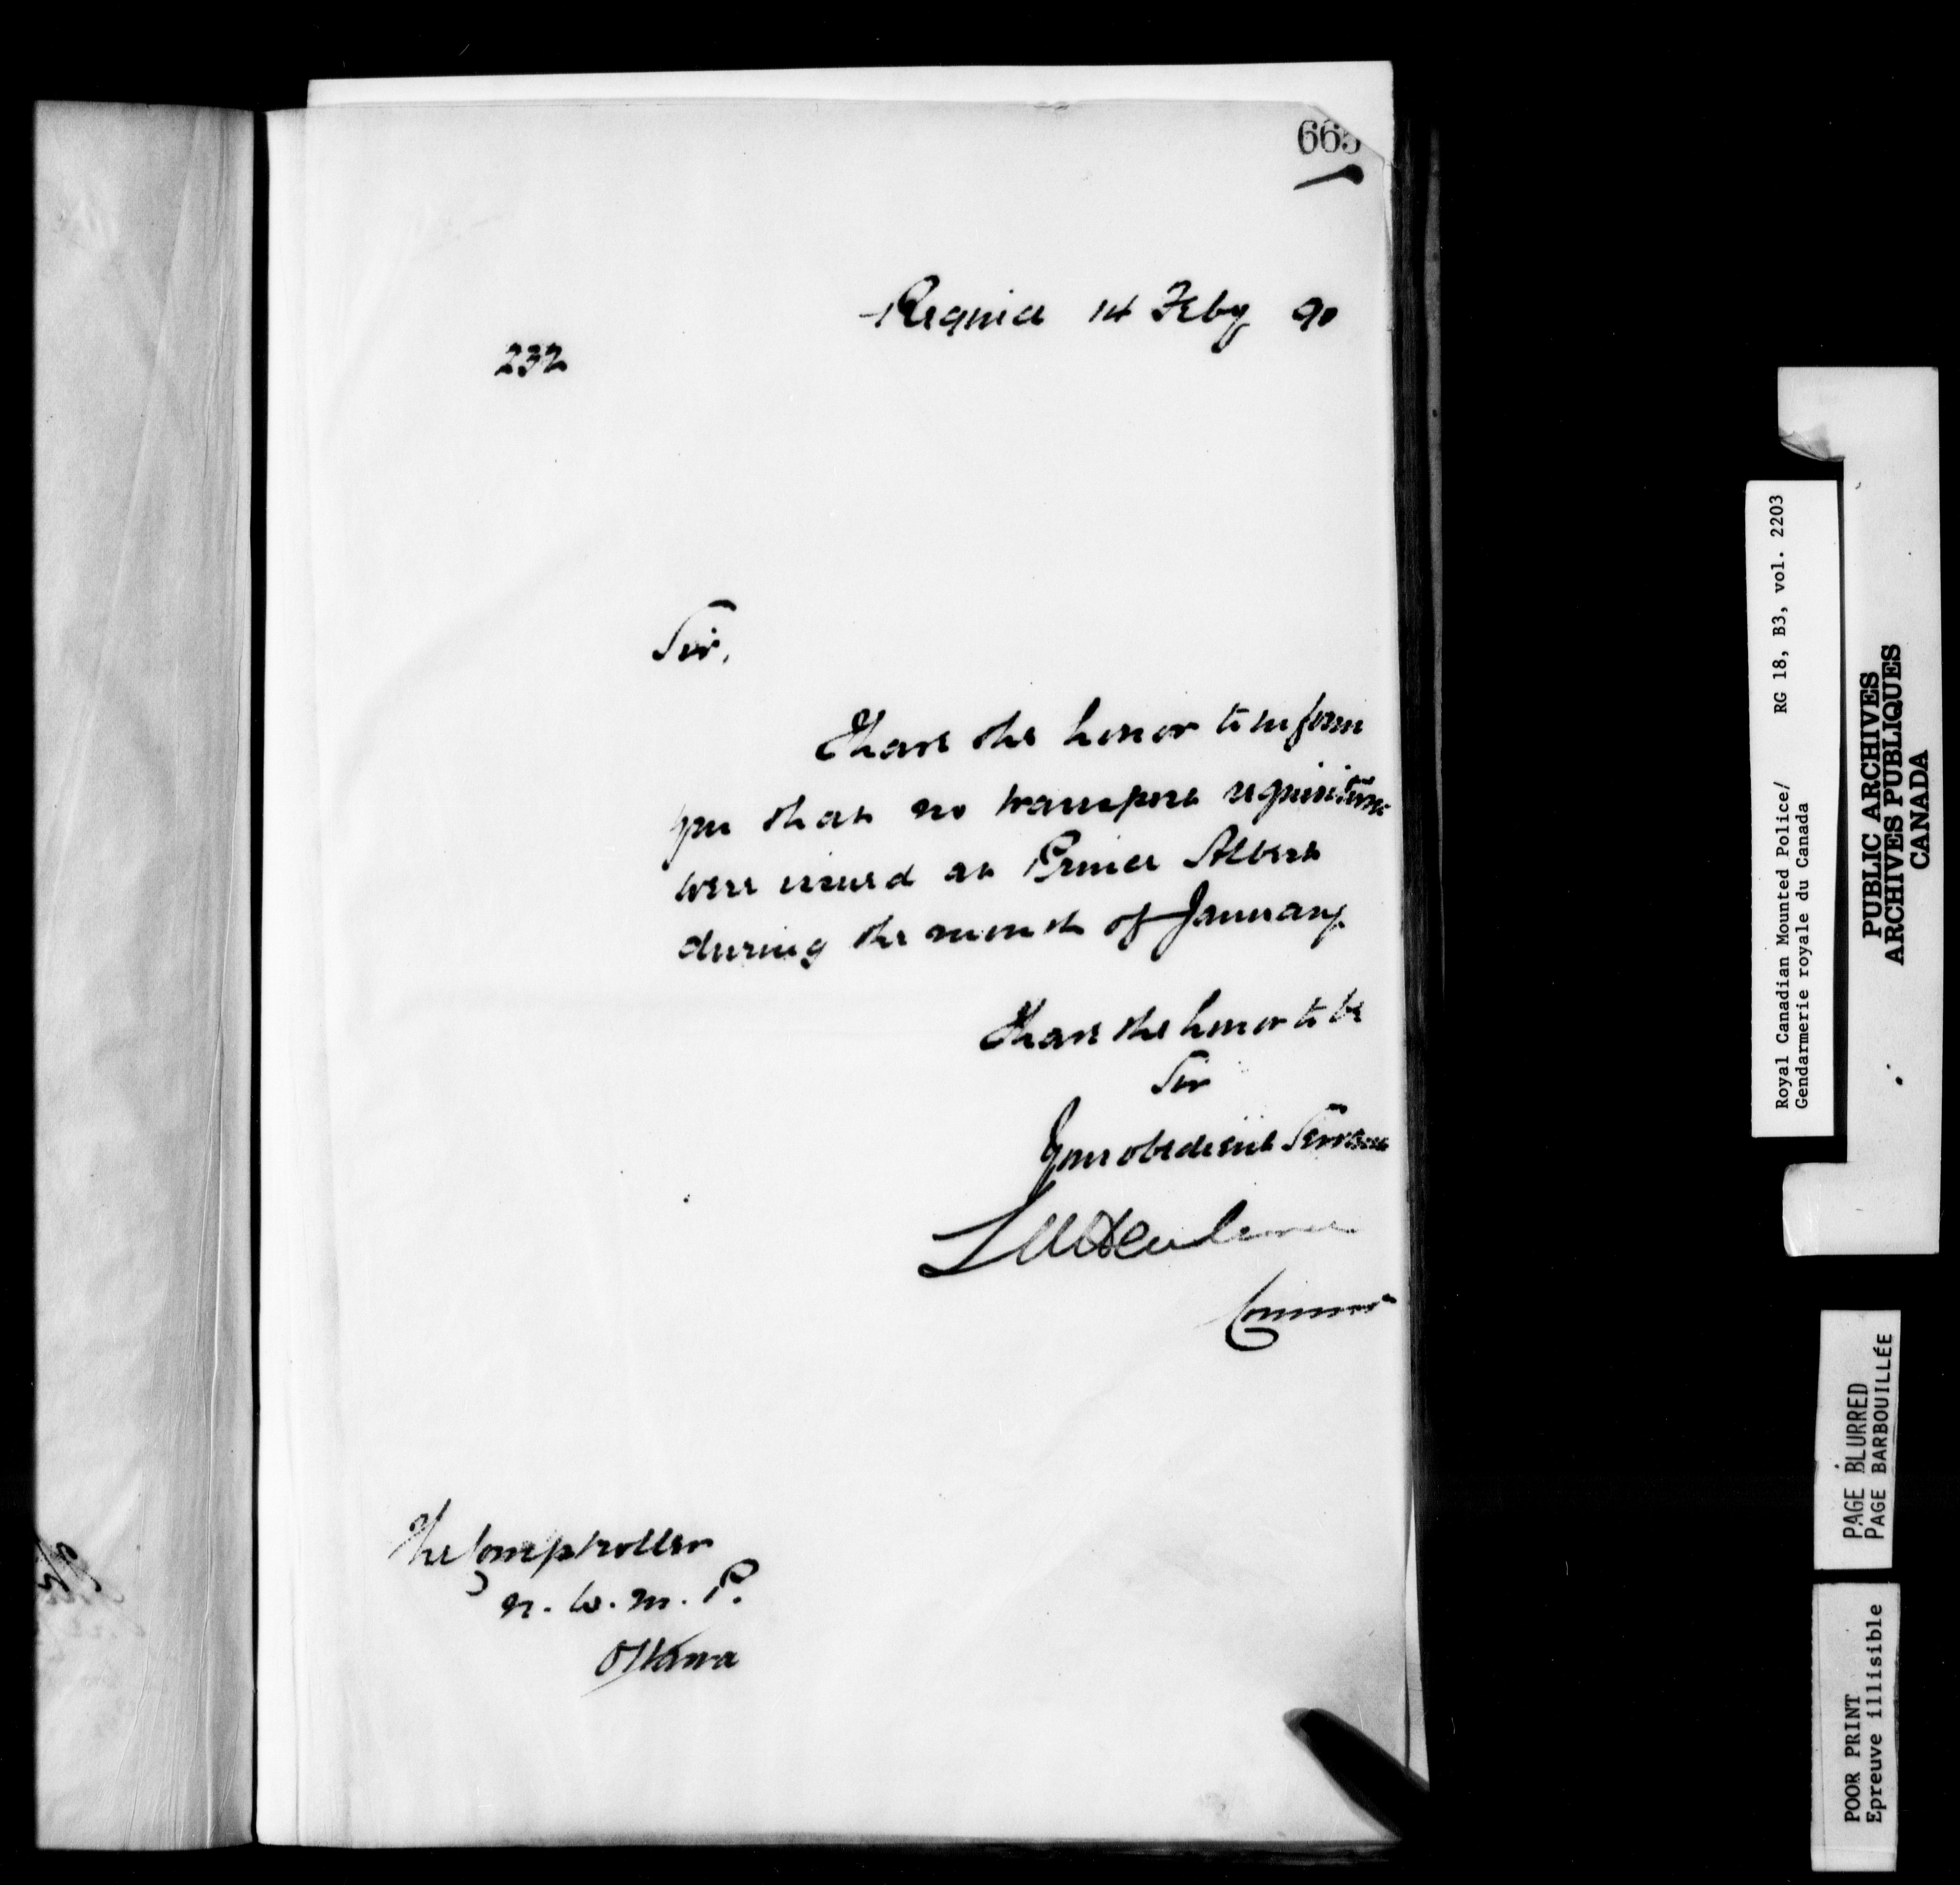 665
Regina 14 Feby 90
232
Sir,
I have the honor to inform
you that no transport requisitions
were issued at Prince Albert
during the month of January.
I have the honor to be
Sir
Your obedient Servant
Commr
The Comptroller
N. W. M. P.
Ottawa
Royal Canadian Mounted Police/ RG 18, B3, vol. 2203
Gendarmerie royale du Canada
PUBLIC ARCHIVES
ARCHIVES PUBLIQUES
CANADA
PAGE BLURRED
PAGE BARBOUILLÉE
POOR PRINT
Epreuve illisible